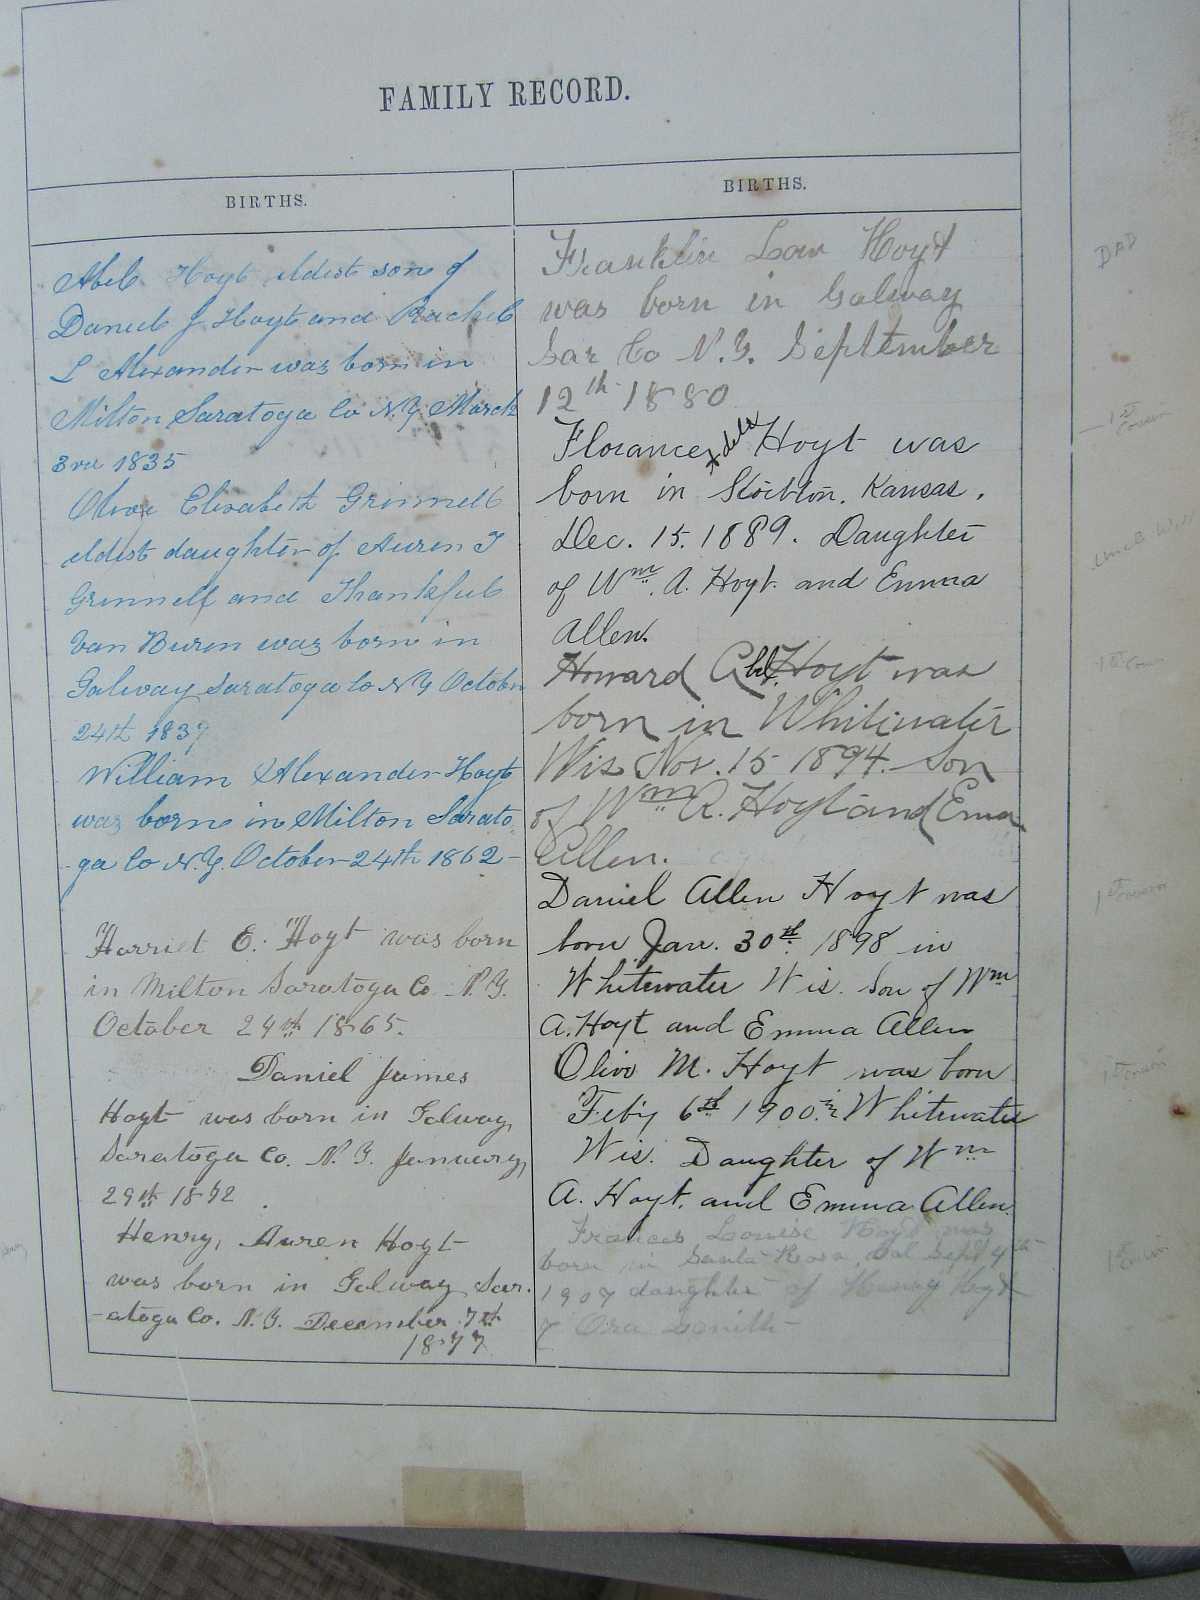 FAMILY RECORD.
BIRTHS.
Abel Hoyt eldest son of
Daniel J Hoyt and Rachel
L Alexander was born in
Milton Saratoga Co N.Y. March
3rd 1835
Olive Elisabeth Grinnell
eldest daughter of Auren T
Grinnell and Thankful
Van Buren was born in
Galway Saratoga Co N Y October
24th 1837
William Alexander Hoyt
was born in Milton Sarato
ga Co N.Y. October 24th 1862
Harriet E. Hoyt was born
in Milton Saratoga Co N.Y.
October 24th 1865.
Daniel James
Hoyt was born in Galway,
Saratoga Co. N.Y. January,
29th 1872
Henry, Auren Hoyt
was born in Galway Sar.
-atoga Co. N.Y. December 7th
1877
BIRTHS.
Franklin Low Hoyt
was born in Galway
Sar Co N.Y. September
12th 1880
Florance Hoyt was
born in Stockton, Kansas,
Dec. 15. 1889. Daughter
of Wm. A. Hoyt. and Emma
Allen.
Howard Abel Hoyt was
born in Whitewater
Wis Nov. 15 1894. Son
of Wm A. Hoyt and Emma
Allen.
Daniel Allen Hoyt was
born Jan. 30th. 1898 in
Whitewater Wis. Son of Wm
A. Hoyt and Emma Allen
Olive M. Hoyt was born
Feb'y 6th 1900. in Whitewater
Wis. Daughter of Wm
A. Hoyt. and Emma Allen.
Frances Louise Hoyt was
born in Santa Rosa, Cal Sept 4th
1907 daughter of Henry Hoyt
& Ora Smith
DAD
1st Cousin
Uncle Will
1st Cous
1st Cousin
1st Cousin
1st Cousin